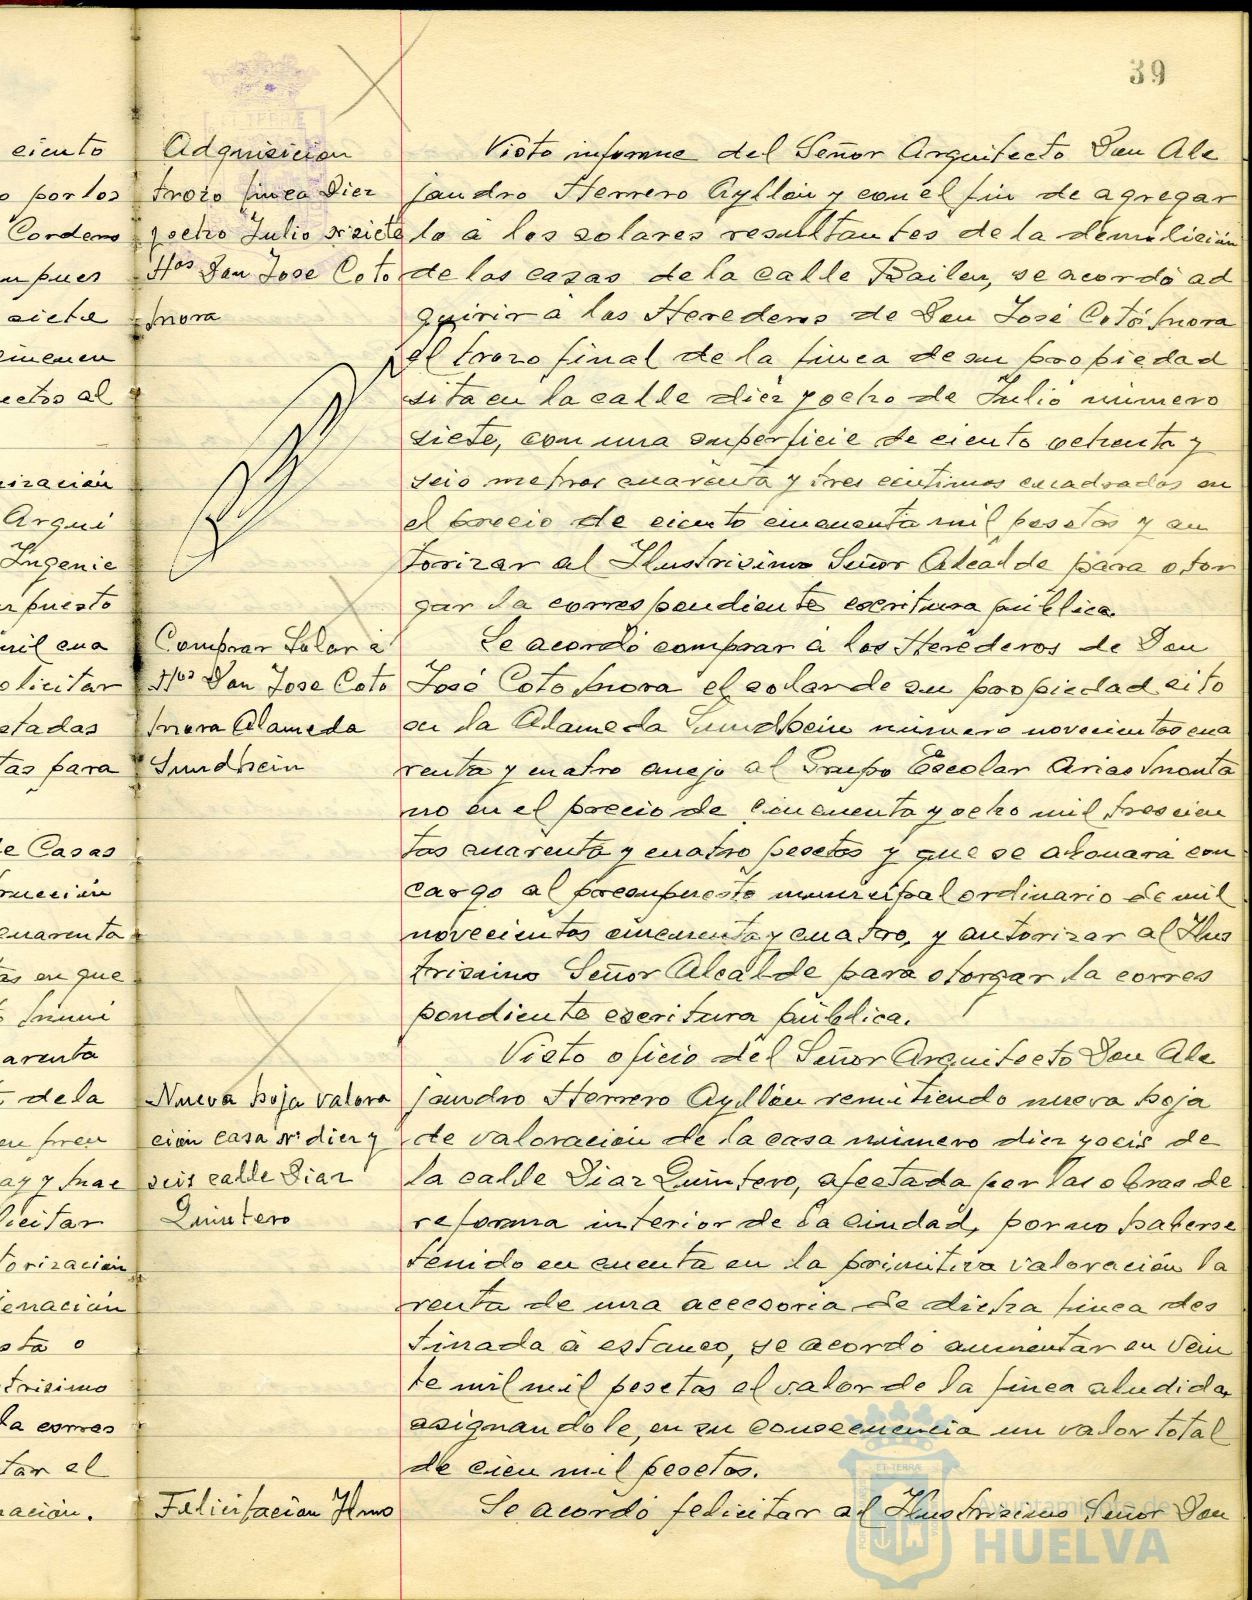 39
eiento
o por los
Cordero
mpues
siete
cimenen
ectos al
nización
Arqui
Ingenie
upuesto
mil cua
olicitar
ctadas
tas para
le Casas
rucción
cuarenta
tas en que
arenta
t dela
licitar
torización
enación
sta o
trisimo
la corres
tar el
nación.
Adquisicion
trozo finca Diez
y ocho Julio nº siete
Hos Don Jose Coto
Mora
Visto informe del Señor Arquitecto Don Ale
jandro Herrero Ayllón y con el fin de agregar
lo á los solares resultantes de la demolición
de las casas de la calle Bailen, se acordó ad
quirir á los Herederos de Don José Coto Mora
el trozo final de la finca de su propiedad
sita en la calle diez y ocho de Julio número
siete, con una superficie de ciento ochenta y
seis metros cuarenta y tres centimos cuadrados en
el precio de ciento cincuenta mil pesetas y au
torizar al Ilustrisimo Señor Alcalde para otor
gar la correspondiente escritura pública.
Comprar Solar á
Hos Don Jose Coto
Mora Alameda
Sundhein
Se acordó comprar á los Herederos de Don
José Coto Mora el solar de su propiedad sito
en la Alameda Sundhein número novecientos cua
renta y cuatro anejo al Grupo Escolar Arias Monta
no en el precio de cincuenta y ocho mil trescien
tas cuarenta y cuatro pesetas y que se abonará con
cargo al presupuesto municipal ordinario de mil
novecientos cincuenta y cuatro, y autorizar al Ilus
trisimo Señor Alcalde para otorgar la corres
pondiente escritura pública.
Nueva hoja valora
ción casa nº diez y
seis calle Diaz
Quintero
Visto oficio del Señor Arquitecto Don Ale
jandro Herrero Ayllón remitiendo nueva hoja
de valoración de la casa número diez y seis de
la calle Diaz Quintero, afectada por las obras de
reforma interior de la ciudad, por no haberse
tenido en cuenta en la primitiva valoración la
renta de una accesoria de dicha finca des
tinada á estanco, se acordó aumentar en vein
te mil mil pesetas el valor de la finca aludida,
asignandole, en su consecuencia un valor total
de cien mil pesetas.
Felicitación Ilmo
Se acordó felicitar al Ilustrisimo Señor Don
Ayuntamiento de
HUELVA